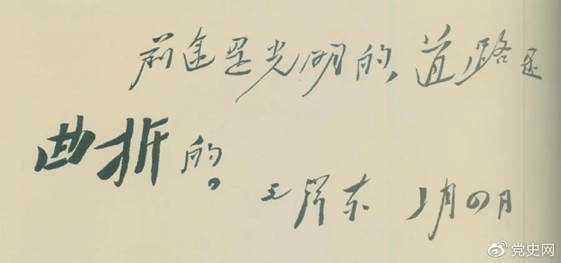 前途是光明的,道路是
曲折的。
毛泽东 上月四日
党史网